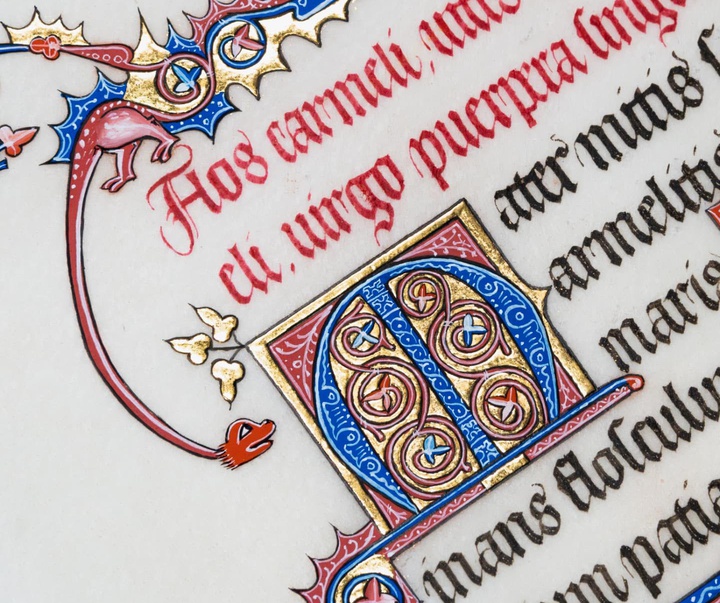 Flos carmeli, uitis
eli, uirgo puerpera sing
Mater mitis s
armelitis
maris
inans flosculu
um patia